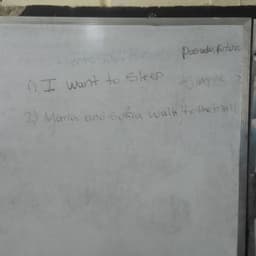 Pasado, futuro
1) I want to Sleep
2) Maria and Sofia walk to the mall